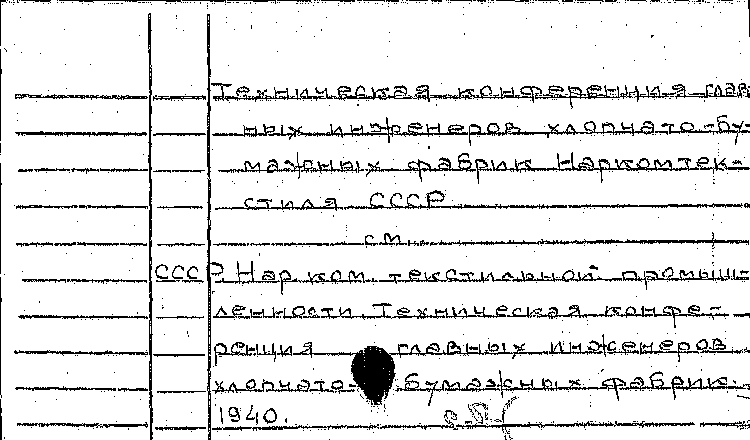 Техническая конференция глав
ных инженеров хлопчато-бу-
мажных фабрик Наркомтек-
стиля СССР
см.
СССР. Нар. ком. текстильной промыш-
ленности. Техническая конфе-
ренция главных инженеров
хлопчато-бумажных фабрик.
1940.